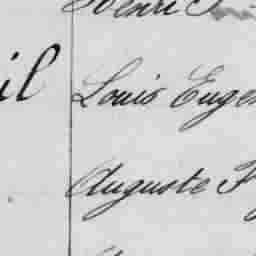 Henri
il Louis Eugen
Auguste F